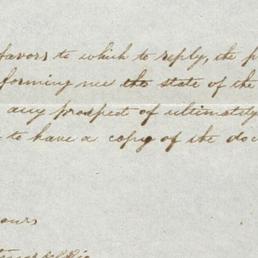 favors to which to reply, the p
forming me the state of the
any prospect of ultimately
to have a copy of the doc
ours